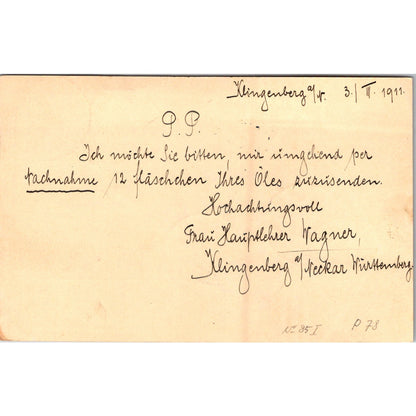 Klingenberg a/N. 3./III. 1911.
P. P.
Ich möchte Sie bitten, mir umgehend per
Nachnahme 12 fläschchen Ihres Öles zuzusenden.
Hochachtungsvoll
Frau Hauptlehrer Wagner,
Klingenberg a/Neckar Württemberg.
P 78